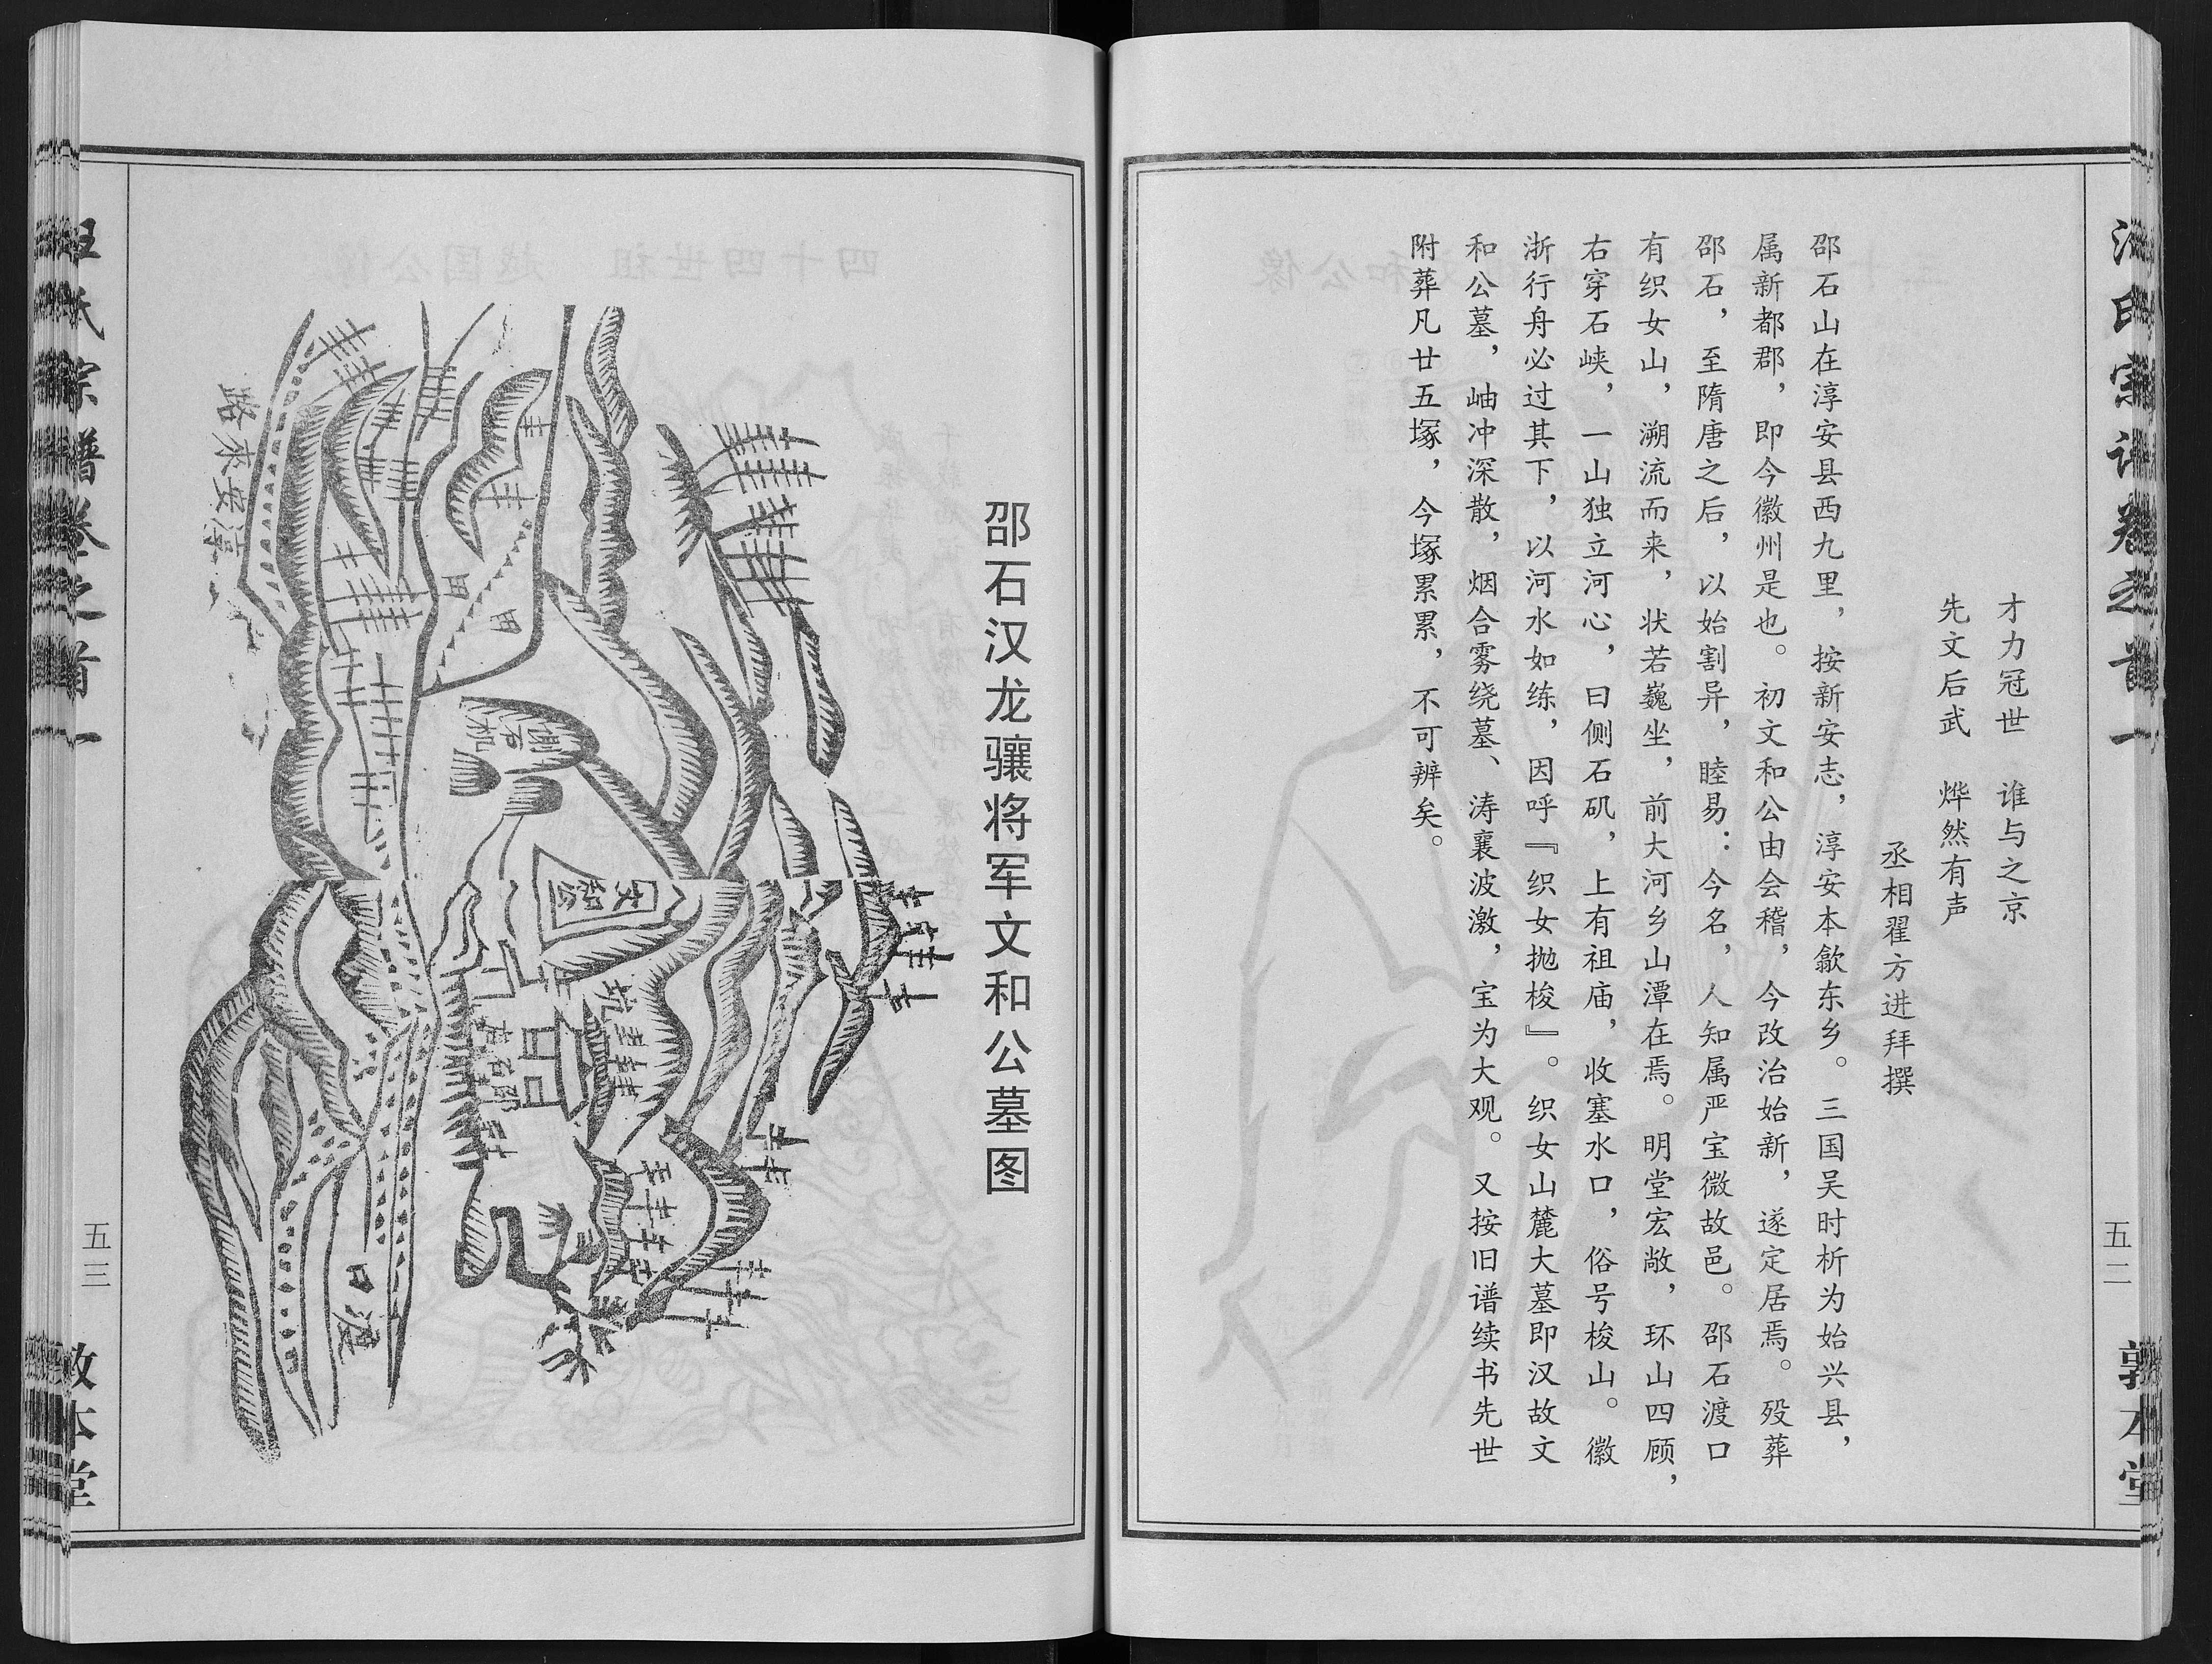 汪氏宗谱卷之首一
五二
敦本堂
才力冠世　谁与之京
先文后武　烨然有声
丞相翟方进拜撰
邵石山在淳安县西九里，按新安志，淳安本歙东乡。三国吴时析为始兴县，
属新都郡，即今徽州是也。初文和公由会稽，今改治始新，遂定居焉。殁葬
邵石，至隋唐之后，以始割异，睦易：今名，人知属严宝微故邑。邵石渡口
有织女山，溯流而来，状若巍坐，前大河乡山潭在焉。明堂宏敞，环山四顾，
右穿石峡，一山独立河心，曰侧石矶，上有祖庙，收塞水口，俗号梭山。徽
浙行舟必过其下，以河水如练，因呼『织女抛梭』。织女山麓大墓即汉故文
和公墓，岫冲深散，烟合雾绕墓、涛襄波激，宝为大观。又按旧谱续书先世
附葬凡廿五塚，今塚累累，不可辨矣。
邵石汉龙骧将军文和公墓图
文和公
侧石机
田
田
坑
淳安来路
渡口
汪氏宗谱卷之首一
五三
敦本堂